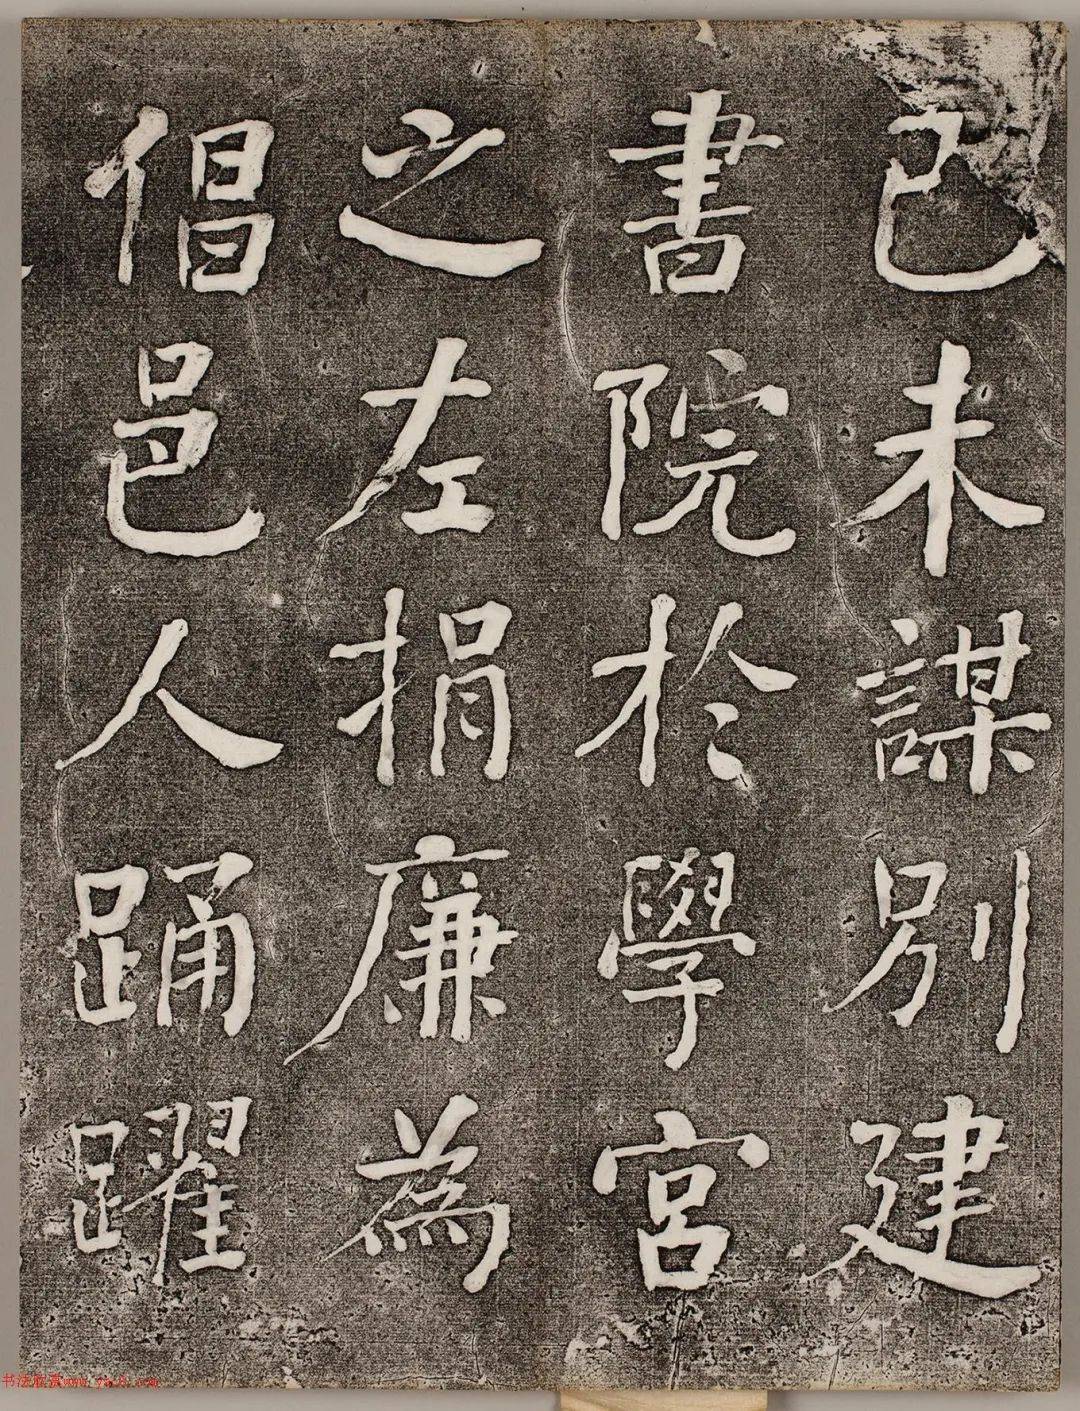 己未謀別建
書院於學宮
之左捐廉為
倡邑人踊躍
书法欣赏www.yac8.com